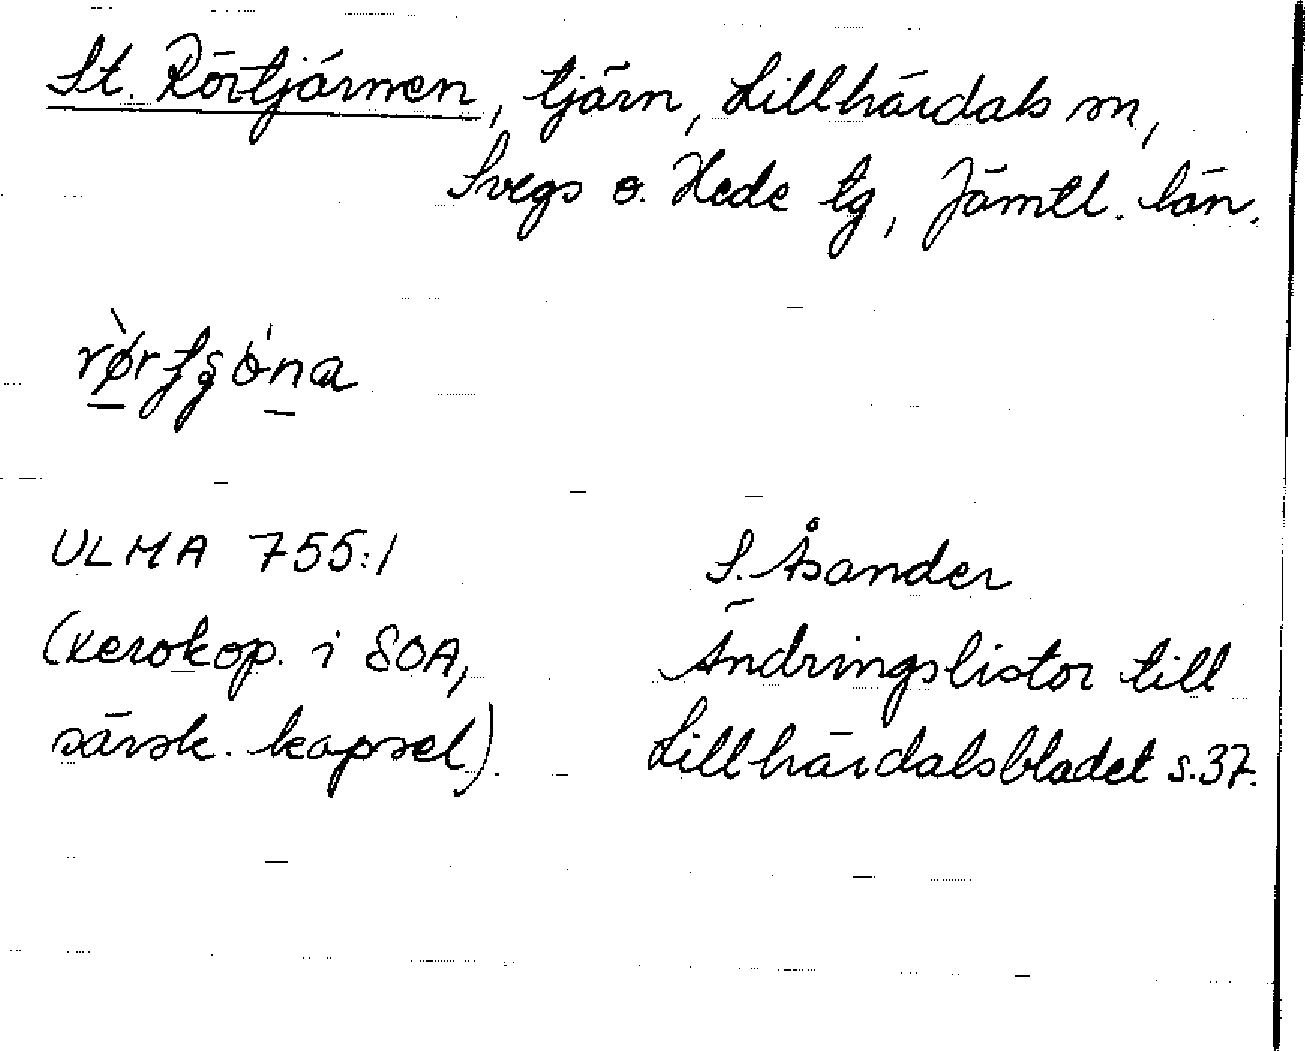 St. Rörtjärnen, tjärn, Lillhärdals sn,
Svegs o. Hede tg, Jämtl. län.
ULMA 755:1
S. Åsander
(xerokop. i SOA,
Ändringslistor till
särsk. kapsel).
Lillhärdalsbladet s.37.